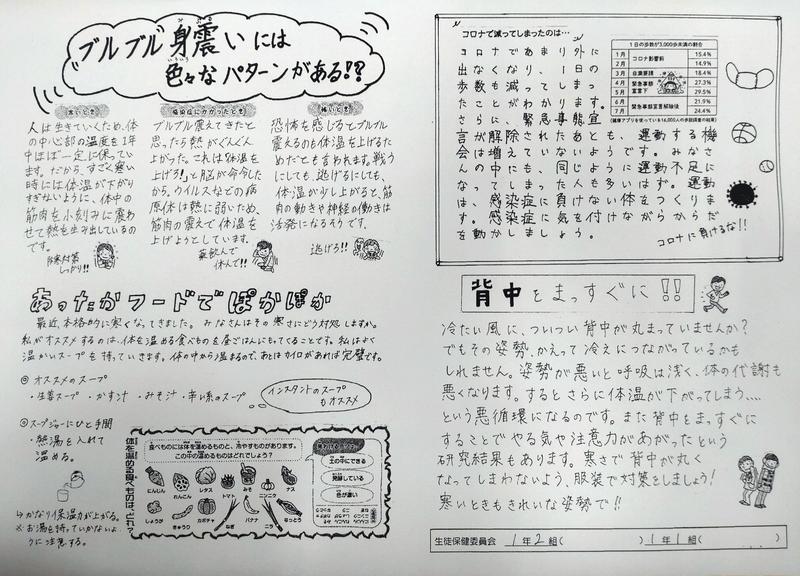 ブルブル身震いには
色々なパターンがある!?
寒いとき
人は生きていくため、体
の中心部の温度を1年
中ほぼ一定に保ってい
ます。だから、すごく寒い
時には体温が下がり
すぎないように、体中の
筋肉を小刻みに震わ
せて熱を生み出しているの
です。
防寒対策
しっかり!!
感染症にかかったとき
ブルブル震えてきたと
思ったら熱がぐんぐん
上がった。これは「体温を
上げろ!」と脳が命令した
から。ウイルスなどの病
原体は熱に弱いため、
筋肉の震えで体温を
上げようとしています。
薬飲んで
休んで!!
怖いとき
恐怖を感じるとブルブル
震えるのも体温を上げるた
めだとも言われます。戦う
にしても、逃げるにしても、
体温が少し上がると、筋
肉の動きや神経の働きは
活発になるそうです。
逃げろ!!
あったかフードでぽかぽか
最近、本格的に寒くなってきました。みなさんはその寒さにどう対処しますか。
私がオススメするのは、体を温める食べものを昼ごはんにもってくることです。私はよく
温かいスープを持っていきます。体の中から温まるので、あとはカイロがあれば完璧です。
◎オススメのスープ
・生姜スープ ・かす汁 ・みそ汁 ・辛い系のスープ
インスタントのスープ
もオススメ
◎スープジャーにひと手間
・熱湯を入れて
温める。
↳かなり保温力が上がる。
※お湯を持っていかないよ
うに注意する。
体を温める食べものは、どれ?
食べものには体を温めるものと、冷やすものがあります。
この中の温めるものはどれでしょう?
にんじん
れんこん
レタス
トマト
みそ
ニンニク
ナス
しょうが
きゅうり
カボチャ
ねぎ
バナナ
ニラ
なっとう
土の中にできる
発酵している
色が濃い
コロナで減ってしまったのは…
コロナであまり外に
出なくなり、1日の
歩数も減ってしまっ
たことがわかります。
さらに、緊急事態宣
言が解除されたあとも、運動する機
会は増えていないようです。みなさ
んの中にも、同じように運動不足に
なってしまった人も多いはず。運動
は、感染症に負けない体をつくりま
す。感染症に気を付けながらからだ
を動かしましょう。
コロナに負けるな!!
1日の歩数が3,000歩未満の割合
1月 コロナ影響前 15.4%
2月 14.9%
3月 自粛要請 18.4%
4月 緊急事態宣言下 27.3%
5月 29.5%
6月 緊急事態宣言解除後 21.9%
7月 24.4%
(健康アプリを使っている16,000人の歩数調査の結果)
背中をまっすぐに!!
冷たい風に、ついつい背中が丸まっていませんか?
でもその姿勢、かえって冷えにつながっているかも
しれません。姿勢が悪いと呼吸は浅く、体の代謝も
悪くなります。するとさらに体温が下がってしまう....
という悪循環になるのです。また背中をまっすぐに
することでやる気や注意力があがったという
研究結果もあります。寒さで背中が丸く
なってしまわないよう、服装で対策をしましょう!
寒いときもきれいな姿勢で!!
生徒保健委員会 1年2組( )1年1組( )